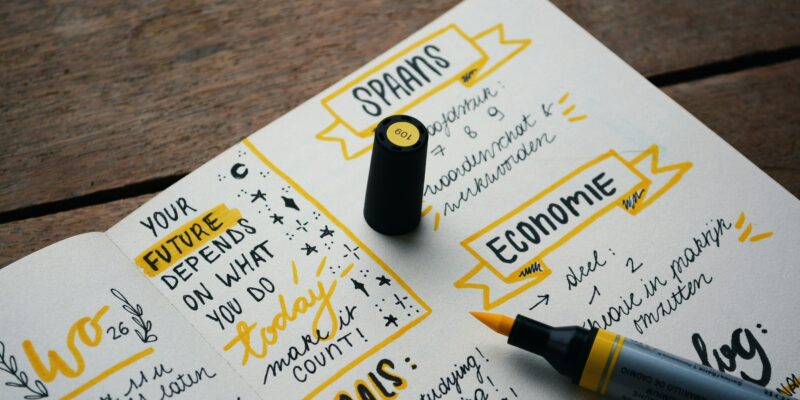 SPAANS
hoofdstuk:
7 8 9
woordenschat &
werkwoorden
109
YOUR
FUTURE
DEPENDS
ON WHAT
YOU DO
today
make it
COUNT!
ECONOMIE
deel:
1 2
theorie in praktijk
omzetten
wo
26
latin
studying!
log: